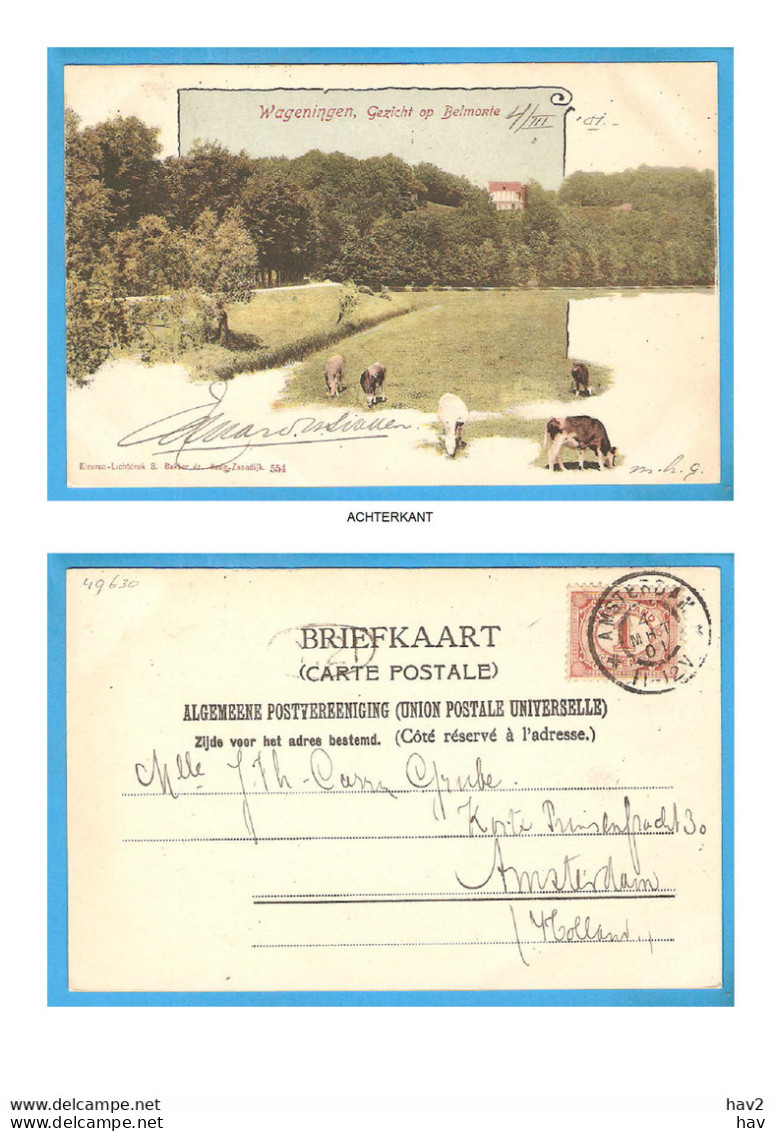 Wageningen, Gezicht op Belmonte 4/III '01.
Kleuren-Lichtdruk S. Bakker Jz. Koog-Zaandijk. 554
m.h.g.
ACHTERKANT
49630
BRIEFKAART
(CARTE POSTALE)
ALGEMEENE POSTVEREENIGING (UNION POSTALE UNIVERSELLE)
Zijde voor het adres bestemd. (Côté réservé à l'adresse.)
AMSTERDAM
4 MRT 01
11-12V
Mlle J. Th.
Korte Prinsengracht 30
Amsterdam
(Holland.)
hav2
website: www.okv.nl hav